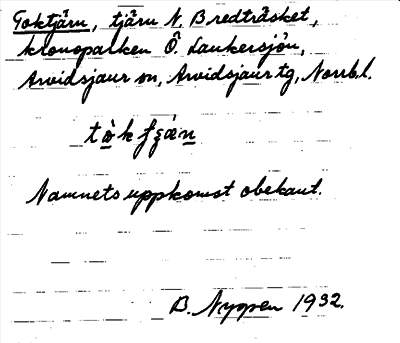 Toktjärn, tjärn N. Bredträsket,
kronoparken Ö. Laukersjön,
Arvidsjaur sn, Arvidsjaur tg, Norrb.l.
Namnets uppkomst obekant.
B. Nyppen 1932.